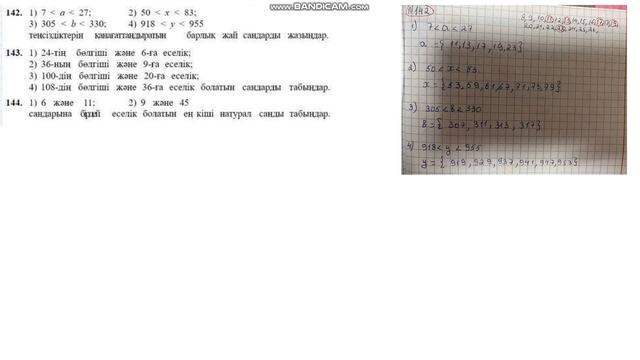 www.BANDICAM.com
142. 1) 7 < a < 27; 2) 50 < x < 83;
3) 305 < b < 330; 4) 918 < y < 955
теңсіздіктерін қанағаттандыратын барлық жай сандарды жазыңдар.
143. 1) 24-тің бөлгіші және 6-ға еселік;
2) 36-ның бөлгіші және 9-ға еселік;
3) 100-дің бөлгіші және 20-ға еселік;
4) 108-дің бөлгіші және 36-ға еселік болатын сандарды табыңдар.
144. 1) 6 және 11; 2) 9 және 45
сандарына бірдей еселік болатын ең кіші натурал санды табыңдар.
№142
8, 9, 10, 11, 12, 13, 14, 15, 16, 17, 18, 19,
20, 21, 22, 23, 24, 25, 26,
1) 7 < a < 27
a = {11, 13, 17, 19, 23}
2) 50 < x < 83
x = {53, 59, 61, 67, 71, 73, 79}
3) 305 < b < 330
b = { 307, 311, 313, 317}
4) 918 < y < 955
y = { 919, 929, 937, 941, 947, 953}